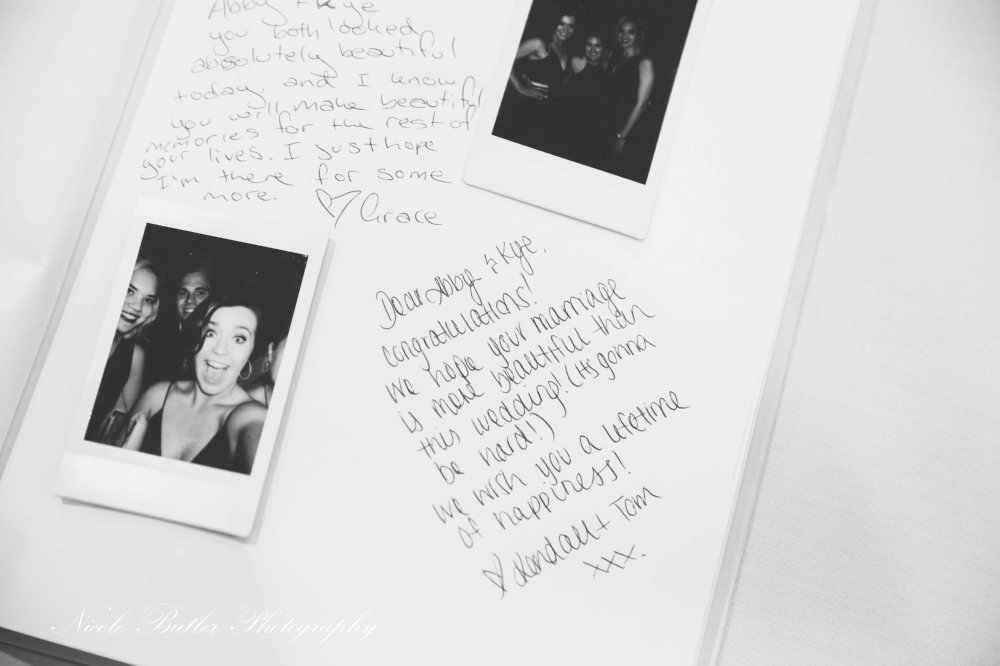 Abby + Kye
you both looked
absolutely beautiful
today, and I know
you will make beautiful
memories for the rest of
your lives. I just hope
I'm there for some
more. ♡ Grace
Dear Abby & Kye,
congratulations!
we hope your marriage
is more beautiful than
this wedding! (It's gonna
be hard!)
we wish you a lifetime
of happiness!
♡ Kendall + Tom
xxx.
Nicole Butler Photography